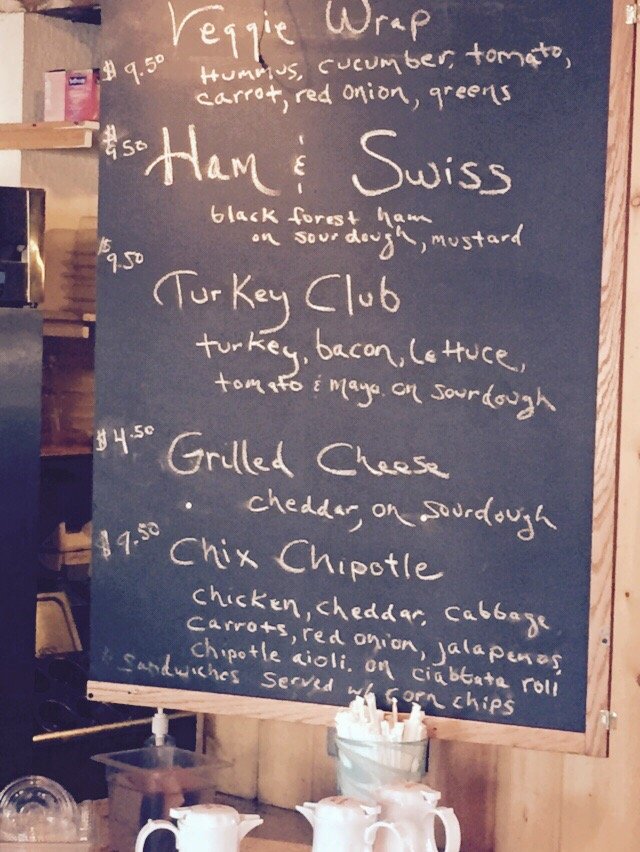 Veggie Wrap
$9.50 Hummus, cucumber, tomato,
carrot, red onion, greens
$9.50 Ham & Swiss
black forest ham
on sourdough, mustard
$9.50
Turkey Club
turkey, bacon, lettuce,
tomato & mayo on sourdough
$4.50 Grilled Cheese
cheddar, on sourdough
$9.50 Chix Chipotle
chicken, cheddar, cabbage
carrots, red onion, jalapenos,
chipotle aioli. on ciabbata roll
* Sandwiches Served w/ corn chips